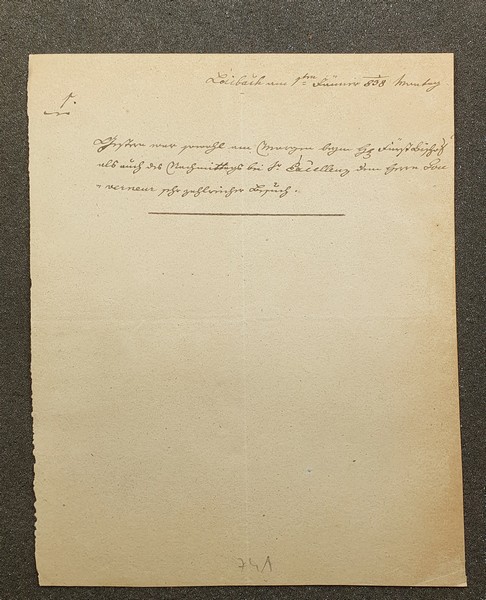 Laibach am 1ten Jänner 838 Montag
1.
Gestern war sowohl am Morgen beym H. Fürst Bischof
als auch des Nachmittags bei Sr. Excellenz dem Herrn Gou-
verneur sehr zahlreicher Besuch.
741